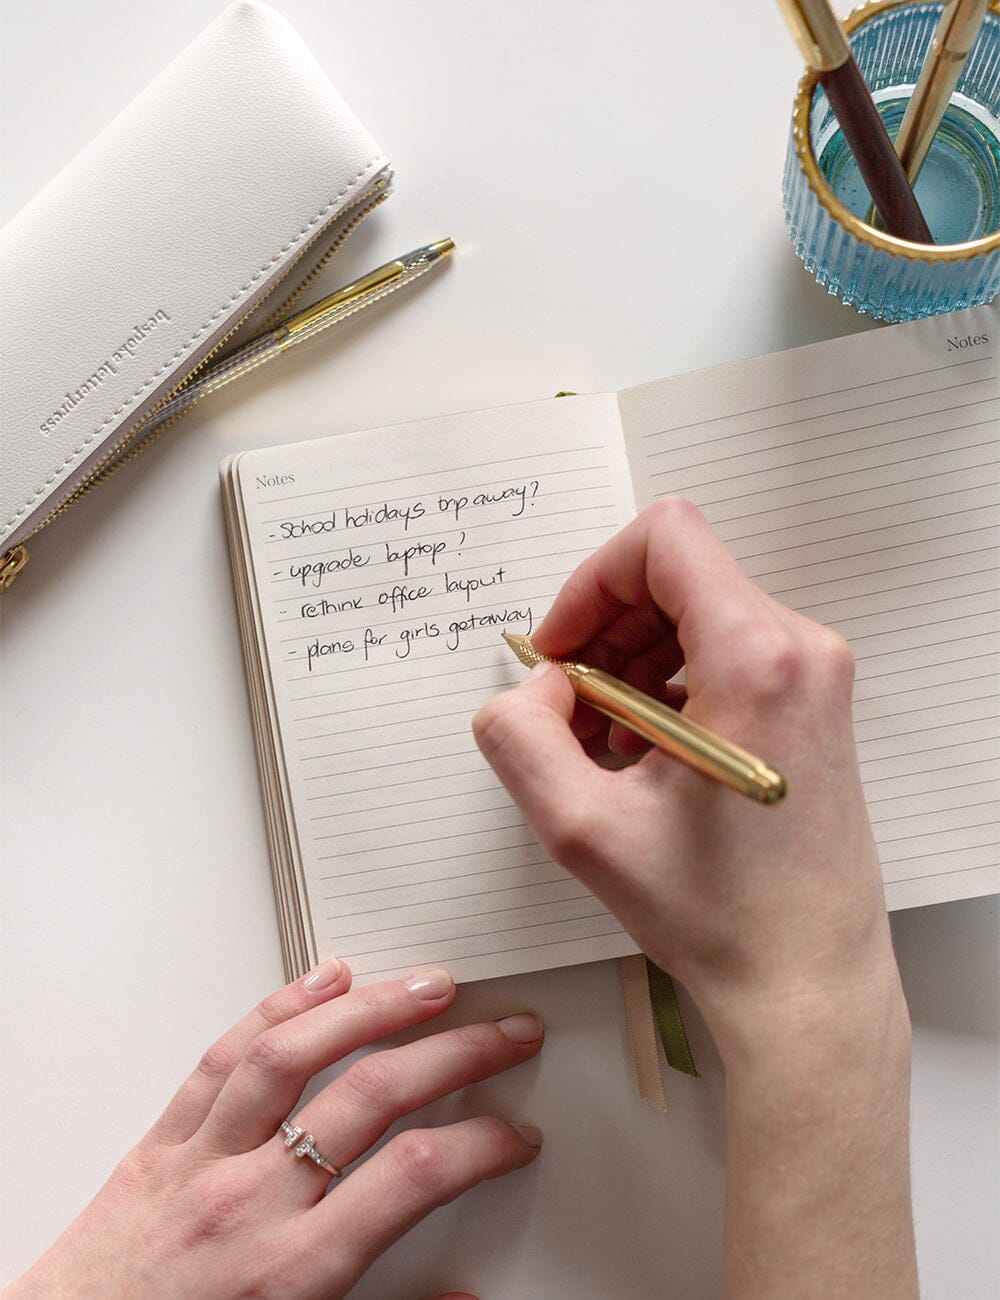 bespoke letterpress
Notes
Notes
- School holidays trip away?
- upgrade laptop?
- rethink office layout
- plans for girls getaway